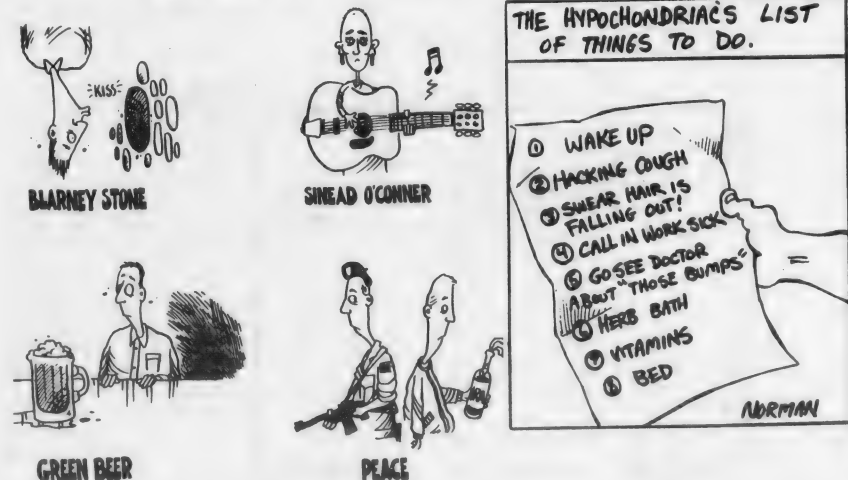 KISS
BLARNEY STONE
SINEAD O'CONNER
GREEN BEER
PEACE
THE HYPOCHONDRIAC'S LIST
OF THINGS TO DO.
① WAKE UP
② HACKING COUGH
③ SWEAR HAIR IS
FALLING OUT!
④ CALL IN WORK SICK
⑤ GO SEE DOCTOR
ABOUT "THOSE BUMPS"
⑥ HERB BATH
⑦ VITAMINS
⑧ BED
NORMAN